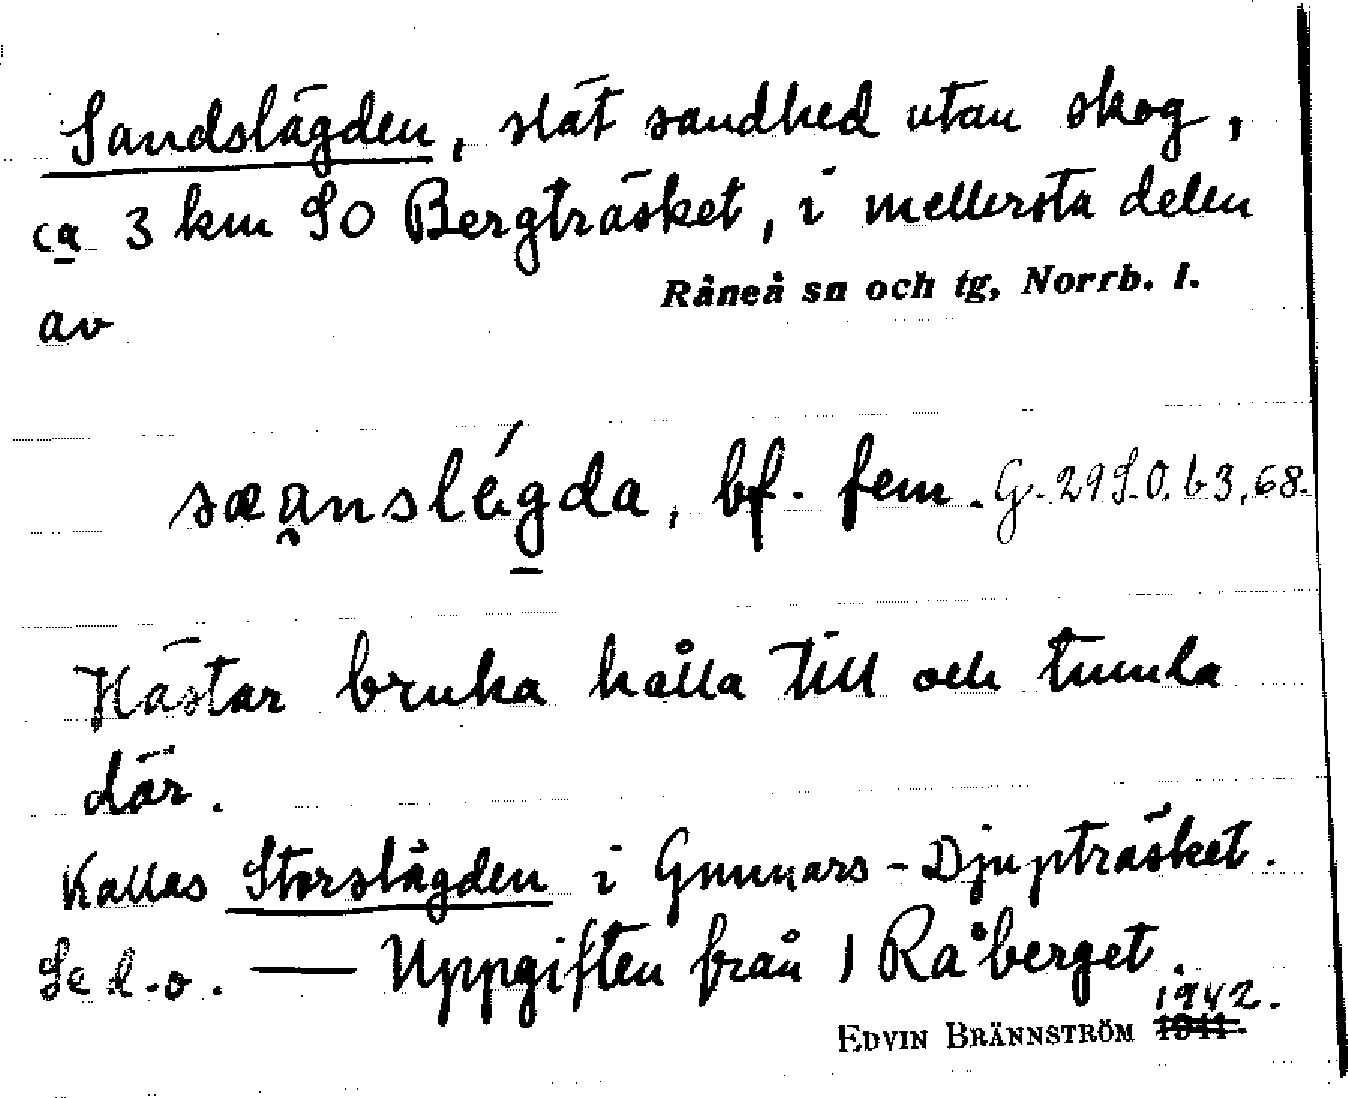 Sandslägden, slät sandhed utan skog,
ca 3 km SO Bergträsket, i mellersta delen
Råneå sn och tg, Norrb. l.
av
sæa̯nslég̱da, bf. fem. G. 29 S.O. 63, 68.
Hästar bruka hålla till och tumla
där.
Kallas Storslägden i Gunnars-Djupträsket.
Se d.o. — Uppgiften från 1 Råberget.
1942.
EDVIN BRÄNNSTRÖM 1941.